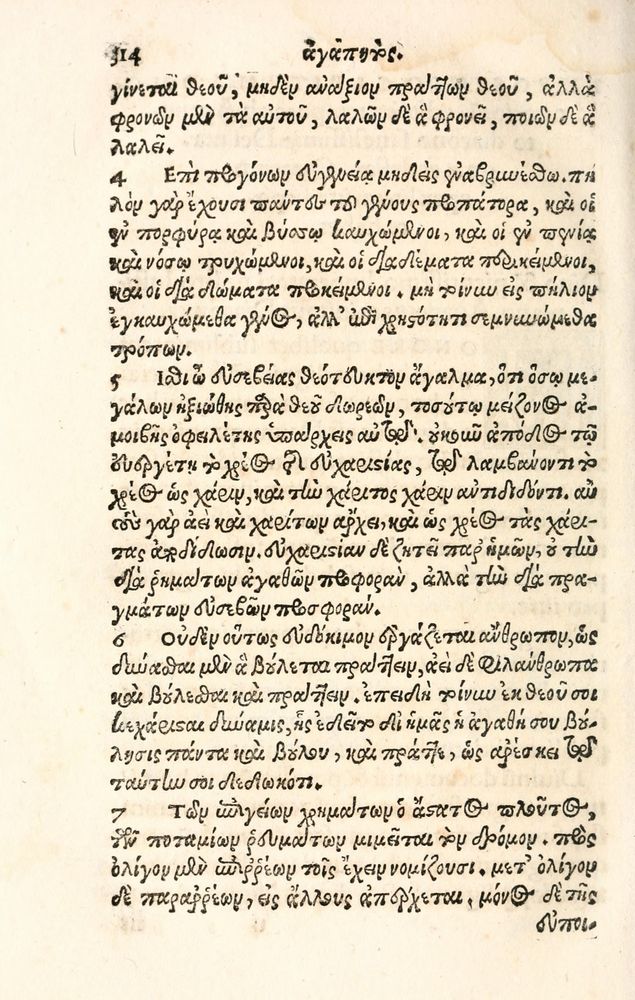 314 ἀγαπητὸς.
γίνεται θεοῦ, μηδὲν ἀνάξιον πράττων θεοῦ, ἀλλὰ
φρονῶν μὲν τὰ αὐτοῦ, λαλῶν δὲ ἃ φρονεῖ, ποιῶν δὲ ἃ
λαλεῖ.
4 Ἐπὶ προγόνων εὐγενείᾳ μηδεὶς ἐναβρυνέσθω. πη
λὸν γὰρ ἔχουσι πάντες τοῦ γένους προπάτορα, καὶ οἱ
ἐν πορφύρᾳ καὶ βύσσῳ καυχώμενοι, καὶ οἱ ἐν πενίᾳ
καὶ νόσῳ τρυχώμενοι, καὶ οἱ διαδέματα περικείμενοι,
καὶ οἱ διὰ δώματα προκείμενοι. μὴ τοίνυν εἰς πήλινον
ἐγκαυχώμεθα γένος, ἀλλ' ἐπὶ χρηστότητι σεμνυνώμεθα
τρόπων.
5 Ἴσθι ὦ εὐσεβείας θεότευκτον ἄγαλμα, ὅτι ὅσῳ με-
γάλων ἠξιώθης παρὰ θεοῦ δωρεῶν, τοσούτῳ μείζονος ἀ-
μοιβῆς ὀφειλέτης ὑπάρχεις αὐτῷ. οὐκοῦν ἀπόδος τῷ
εὐεργέτῃ τὸ χρέος τῆς εὐχαριστίας, τῷ λαμβάνοντι τὸ
χρέος ὡς χάριν, καὶ τὴν χάριτος χάριν ἀντιδιδόντι. αὐ
τὸς γὰρ ἀεὶ καὶ χαρίτων ἄρχει, καὶ ὡς χρέος τὰς χάρι-
τας ἀποδίδωσιν. εὐχαριστίαν δὲ ζητεῖ παρ' ἡμῶν, οὐ τὴν
διὰ ῥημάτων ἀγαθῶν προφοράν, ἀλλὰ τὴν διὰ πρα-
γμάτων εὐσεβῶν προσφοράν.
6 Οὐδὲν οὕτως εὐδόκιμον ἐργάζεται ἄνθρωπον, ὡς
δύνασθαι μὲν ἃ βούλεται πράττειν, ἀεὶ δὲ φιλάνθρωπα
καὶ βούλεσθαι καὶ πράττειν. ἐπειδὴ τοίνυν ἐκ θεοῦ σοι
κεχάρισται δύναμις, ἧς ἐδεῖτο δι' ἡμᾶς ἡ ἀγαθή σου βού-
λησις πάντα καὶ βούλου, καὶ πράττε, ὡς ἀρέσκει τῷ
ταύτην σοι δεδωκότι.
7 Τῶν ἐπιγείων χρημάτων ὁ ἄστατος πλοῦτος,
τῶν ποταμίων ῥευμάτων μιμεῖται τὸν δρόμον. πρὸς
ὀλίγον μὲν ἐπιῤῥέων τοῖς ἔχειν νομίζουσι. μετ' ὀλίγον
δὲ παραῤῥέων, εἰς ἄλλους ἀπέρχεται. μόνος δὲ τῆς
εὐποι-